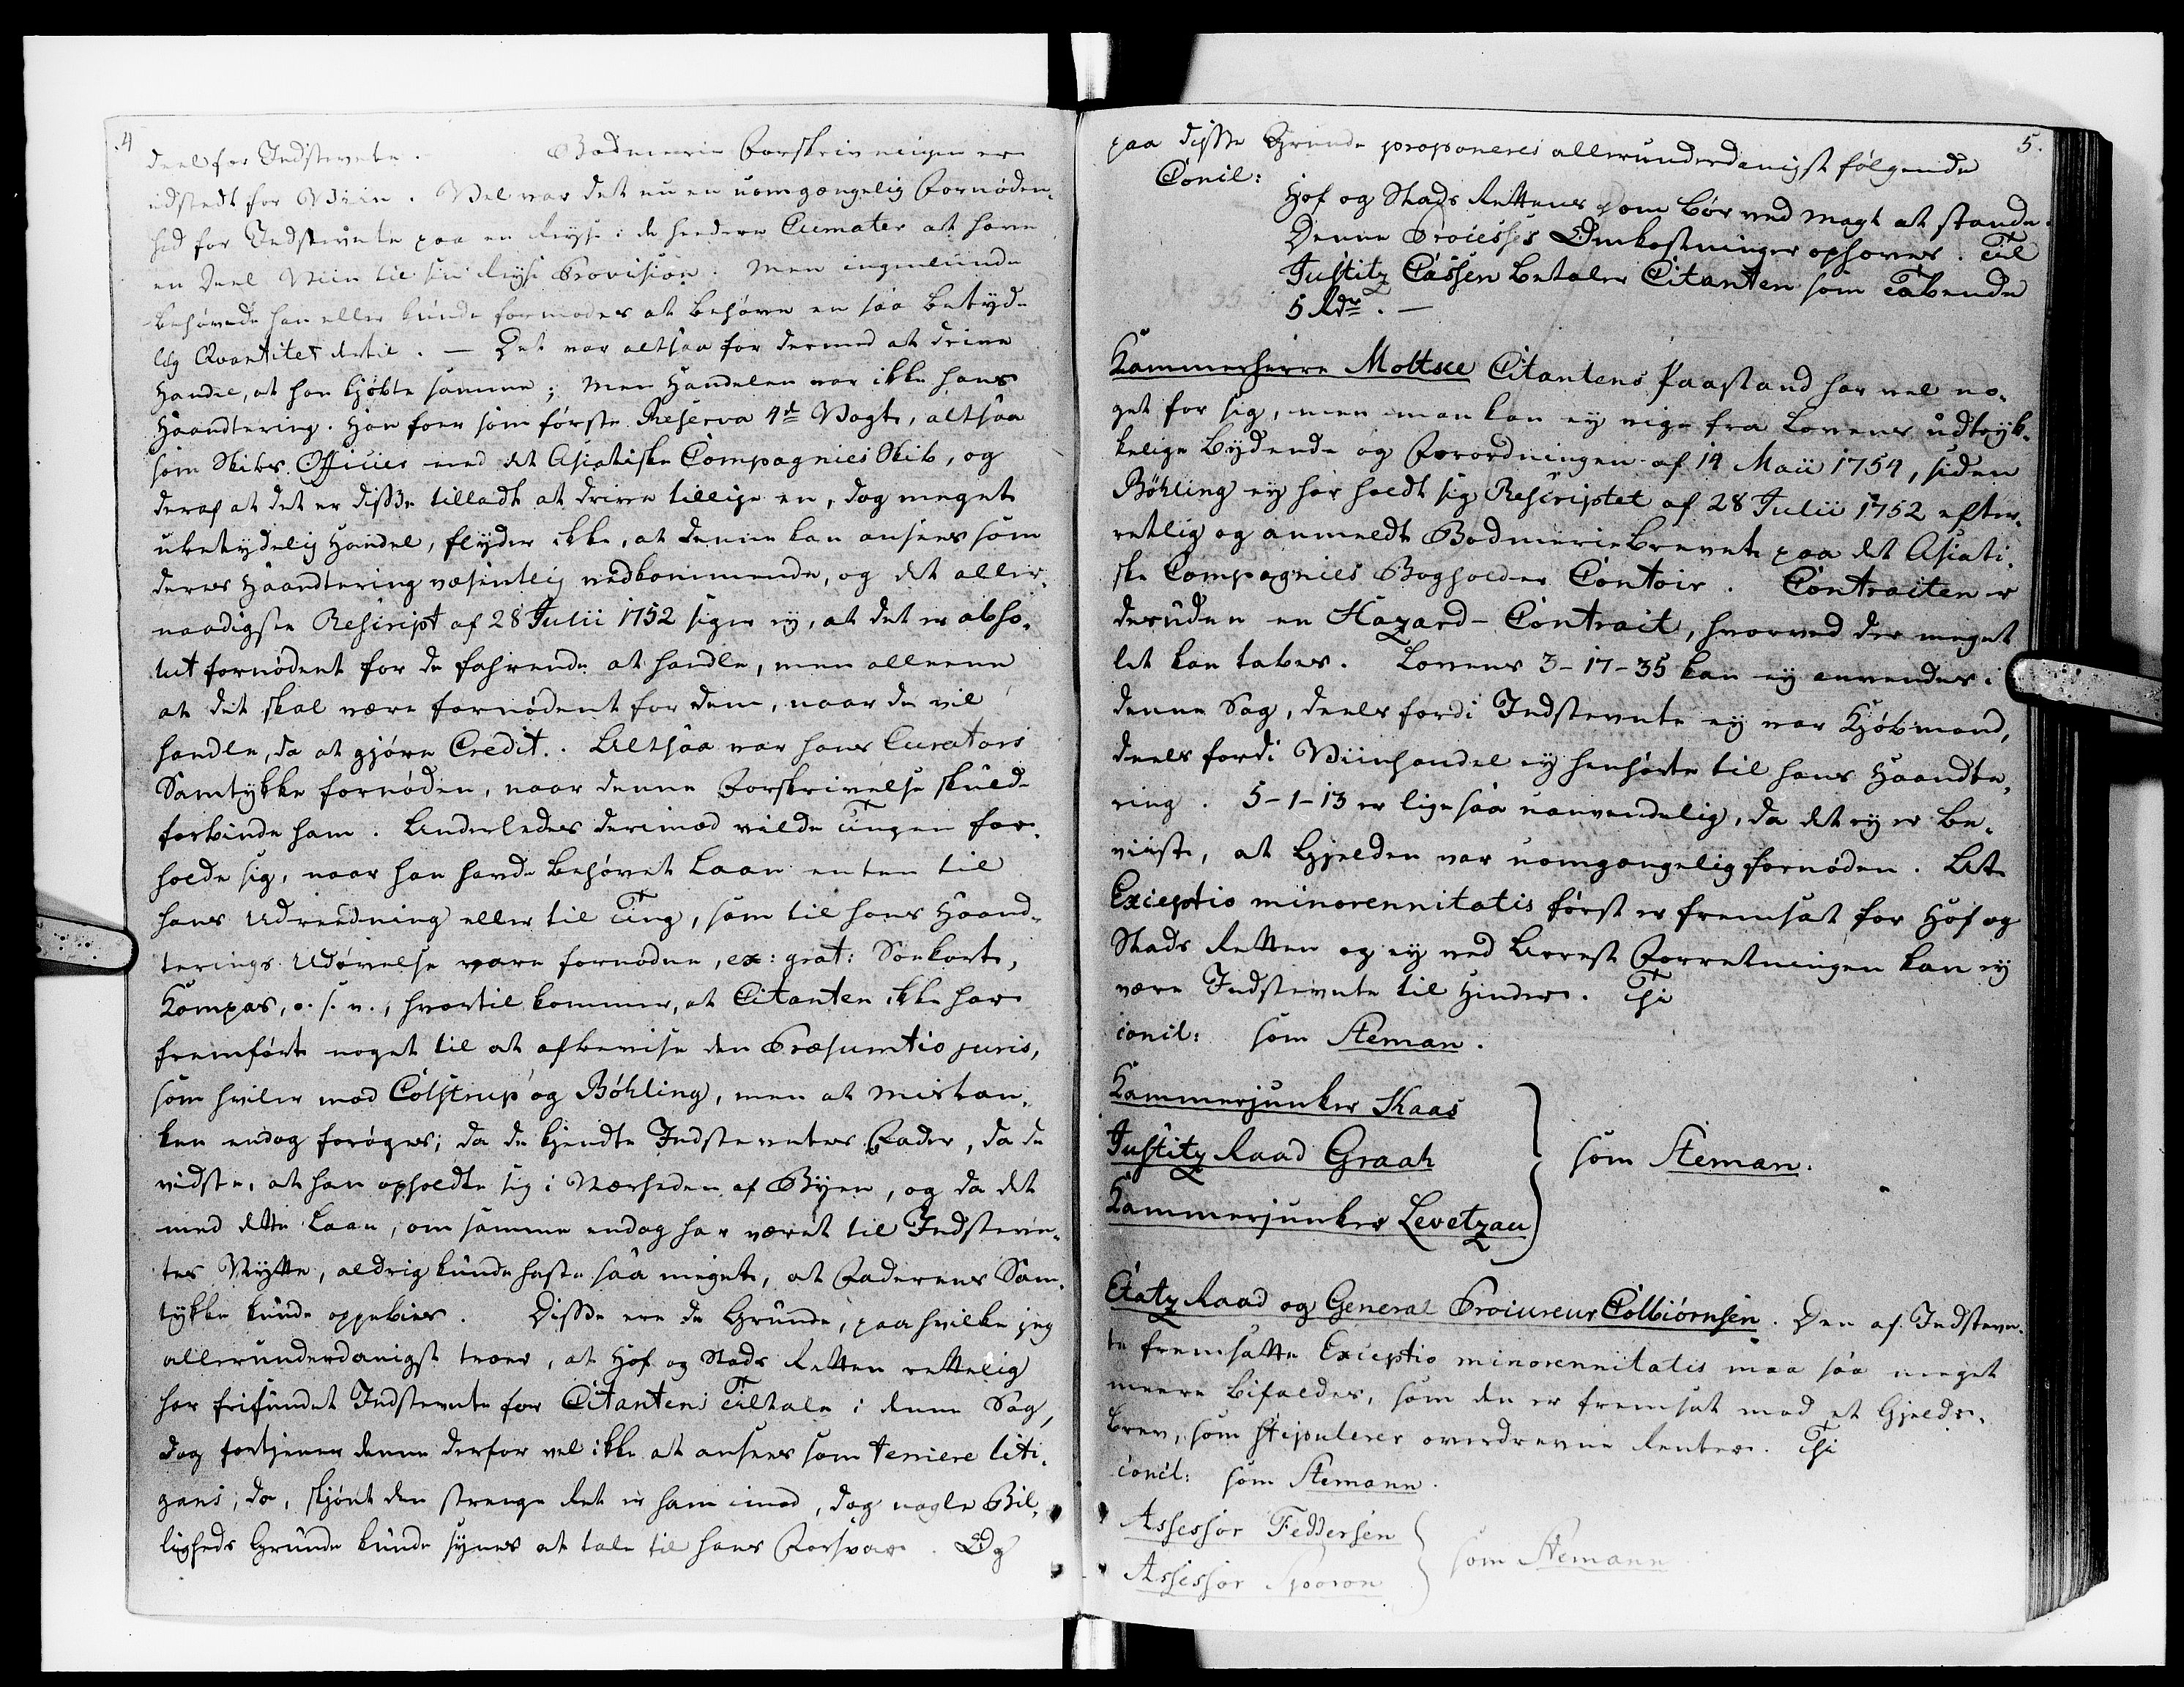 4
deel for Indstevnte. Bodmerie Forskrivningen er
udstedt for Viin. Vel var det nu en uomgængelig Fornøden-
hed for Indstevnte paa en Reyse i de heedere Climater at have
en Deel Viin til sin Reyse Provision. Men ingenlunde
behøvede han eller kunde formodes at behøve en saa betyde-
lig Qvantitet dertil. — Det var altsaa for dermed at drive
Handel, at han kjøbte samme; Men Handelen var ikke hans
Haandtering. Han foer som første Reserva 4de Vagt, altsaa
som Skibs Officier med det Asiatiske Compagnies Skib, og
deraf at det er disse tilladt at drive tillige en, dog meget
ubetydelig Handel, flyder ikke, at denne kan ansees som
deres Haandtering væsentlig vedkommende, og det aller-
naadigste Rescript af 28 Julii 1752 siger ey, at det er abso-
lut fornødent for de fahrende at handle, men alleene
at det skal være fornødent for dem, naar de vil
handle, da at gjøre Credit. Altsaa var hans Curators
Samtykke fornøden, naar denne Forskrivelse skulde
forbinde ham. Anderledes derimod vilde Tingen for-
holde sig, naar han havde behøvet Laan enten til
hans Udreedning eller til Ting, som til hans Haand-
terings Udøvelse vare fornødne, ex: grat: Søekort,
Kompas, o. s. v., hvortil kommer, at Citanten ikke har
fremført noget til at afbevise den Præsumtio juris,
som hviler mod Colstrup og Bøhling, men at Mistan-
ken endog forøges; da de kjendte Indstevntes Fader, da de
vidste, at han opholdte sig i Nærheden af Byen, og da det
med dette Laan, om samme endog har været til Indstevn-
tes Nytte, aldrig kunde haste saa meget, at Faderens Sam-
tykke kunde oppebies. Disse ere de Grunde, paa hvilke jeg
allerunderdanigst troer, at Hof og Stads Retten rettelig
har frifundet Indstevnte for Citantens Tiltale i denne Sag,
dog fortjener denne derfor vel ikke at ansees som temere liti-
gans; da, skjønt den strenge Ret er ham imod, dog nogle Bil-
ligheds Grunde kunde synes at tale til hans Forsvar. Og
5.
paa disse Grunde proponeres allerunderdanigst følgende
Concl:
Hof og Stads Rettens Dom bør ved Magt at stande.
Denne Processes Omkostninger ophæves. Til
Justitz Cassen betaler Citanten som Tabende
5 Rdr. —
Kammerherre Moltke Citantens Paastand har vel no-
get for sig, men man kan ey vige fra Lovens udtryk-
kelige Bydende og Forordningen af 14 Maii 1754, siden
Bøhling ey har holdt sig Rescriptet af 28 Julii 1752 efter-
retlig og anmeldt Bodmeriebrevet paa det Asiati-
ske Compagnies Bogholder Contoir. Contracten er
desuden en Hazard-Contract, hvorved der meget
let kan tabes. Lovens 3-17-35 kan ey anvendes i
denne Sag, deels fordi Indstevnte ey var Kjøbmand,
deels fordi Viinhandel ey henhørte til hans Haandte-
ring. 5-1-13 er ligesaa uanvendelig, da det ey er be-
viist, at Gjelden var uomgængelig fornøden. At
Exceptio minorennitatis først er fremsat for Hof og
Stads Retten og ey ved Arrest Forretningen kan ey
være Indstevnte til Hinder. Thi
concl: som Steman.
Kammerjunker Kaas
Justitz Raad Graah
Kammerjunker Levetzau
som Steman.
Etatz Raad og General Procureur Colbiørnsen. Den af Indstevn-
te fremsatte Exceptio minorennitatis maa saa meget
meere bifaldes, som den er fremsat mod et Gjelds-
brev, som stipulerer overdrevne Renter. Thi
concl: som Stemann.
Assessor Feddersen
Assessor Sporon
som Stemann